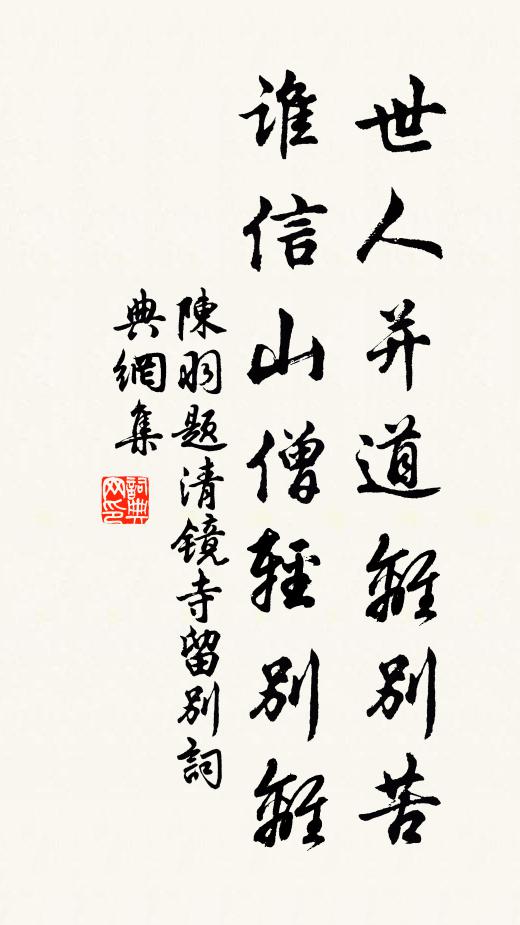 世人并道離別苦
谁信山僧輕別離
陳羽題清鏡寺留別詞
典網集
詞典网印